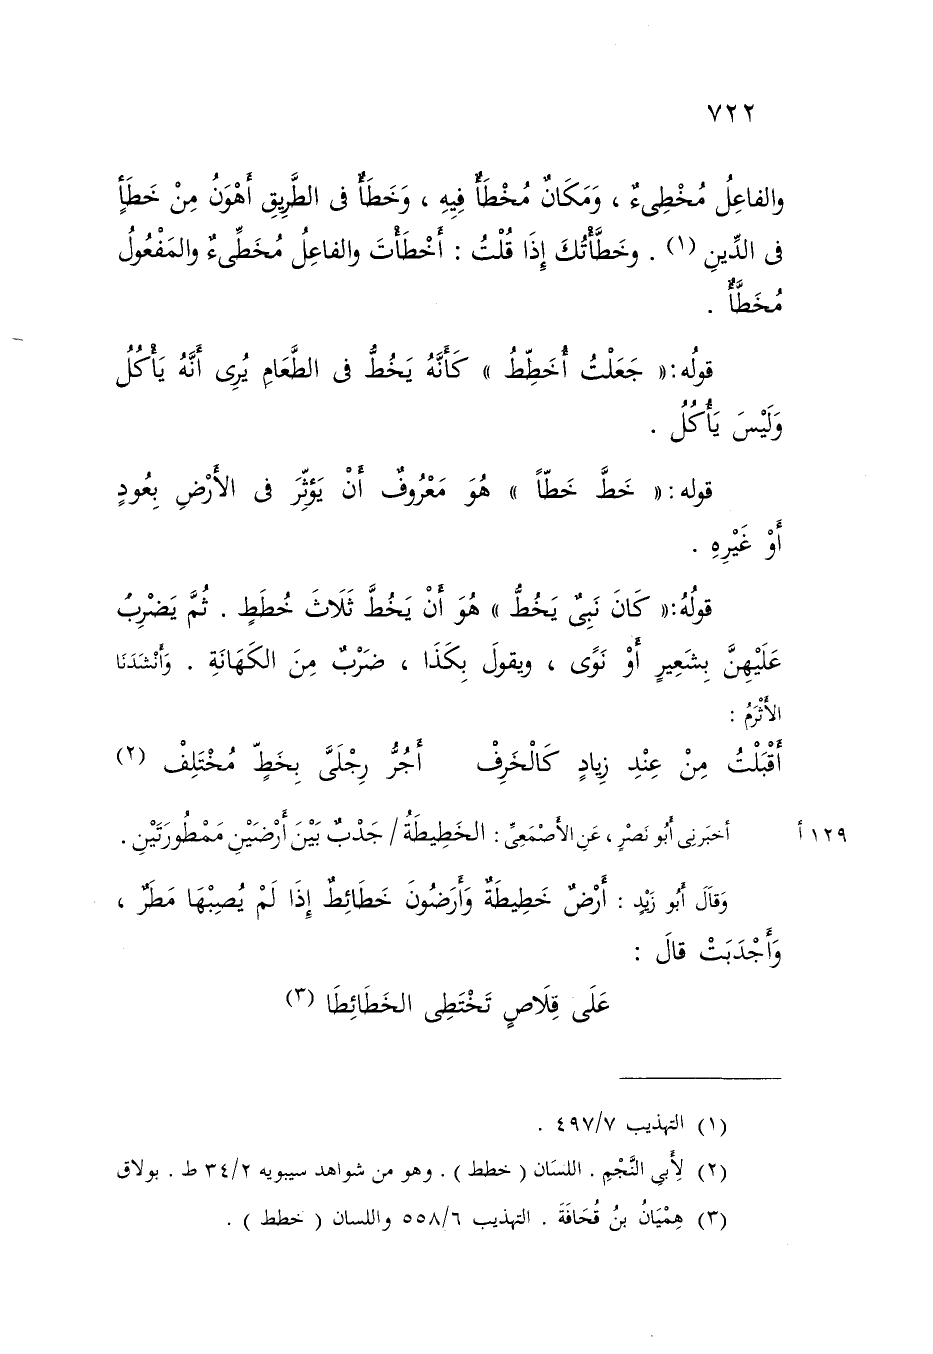 ٧٢٢
والفاعِلُ مُخْطِىءٌ ، وَمَكَانٌ مُخْطَأٌ فِيهِ ، وَخَطَأٌ فى الطَّرِيقِ أَهْوَنُ مِنْ خَطَأٍ
فى الدِّينِ (١) . وخَطَّأْتُكَ إِذَا قُلْتُ : أَخْطَأْتَ والفاعِلُ مُخَطِّىءٌ والمَفْعُولُ
مُخَطَّأٌ .
قولُه :« جَعَلْتُ أُخَطِّطُ » كَأَنَّهُ يَخُطُّ فى الطَّعَامِ يُرِى أَنَّهُ يَأْكُلُ
وَلَيْسَ يَأْكُلُ .
قوله :« خَطَّ خَطّاً » هُوَ مَعْرُوفٌ أَنْ يَؤثِّرَ فى الأَرْضِ بِعُودٍ
أَوْ غَيْرِهِ .
قولُهُ:« كَانَ نَبِىٌ يَخُطُّ » هُوَ أَنْ يَخُطَّ ثَلَاثَ خُطَطٍ . ثُمَّ يَضْرِبُ
عَلَيْهِنَّ بِشَعِيرٍ أَوْ نَوًى ، ويقولَ بِكَذَا ، ضَرْبٌ مِنَ الكَهَانَةِ . وَأَنْشَدَنَا
الأَثْرَمُ :
أَقْبَلْتُ مِنْ عِنْدِ زِيادٍ كَالْخَرِفْ أَجُرُّ رِجْلَىَّ بِخَطٍّ مُخْتَلِفْ (٢)
أخبَرنِى أَبُو نَصْرٍ ، عَنِ الأَصْمَعِىِّ : الخَطِيطَةُ / جَدْبٌ بَيْنَ أَرْضَيْنِ مَمْطُورَتَيْنِ . ١٢٩ أ
وَقَالَ أَبُو زَيْدٍ : أَرْضٌ خَطِيطَةٌ وَأَرَضُونَ خَطَائِطٌ إِذَا لَمْ يُصِبْهَا مَطَرٌ ،
وَأَجْدَبَتْ قالَ :
عَلَى قِلَاصٍ تَخْتَطِى الخَطَائِطَا (٣)
(١) التهذيب ٤٩٧/٧ .
(٢) لِأَبِى النَّجْمِ . اللسَان ( خطط ) . وهو من شواهد سيبويه ٣٤/٢ ط . بولاق
(٣) هِمْيَانُ بنُ قُحَافَةَ . التهذيب ٥٥٨/٦ واللسان ( خطط ) .